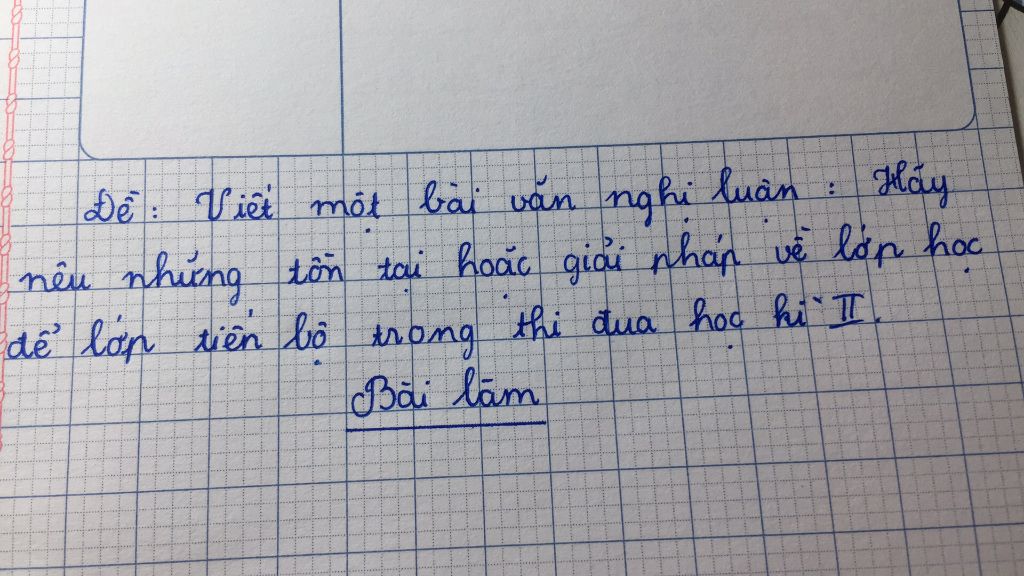 Đề : Viết một bài văn nghị luận : Hãy
nêu những tồn tại hoặc giải pháp về lớp học
để lớp tiến bộ trong thi đua học kì II.
Bài làm